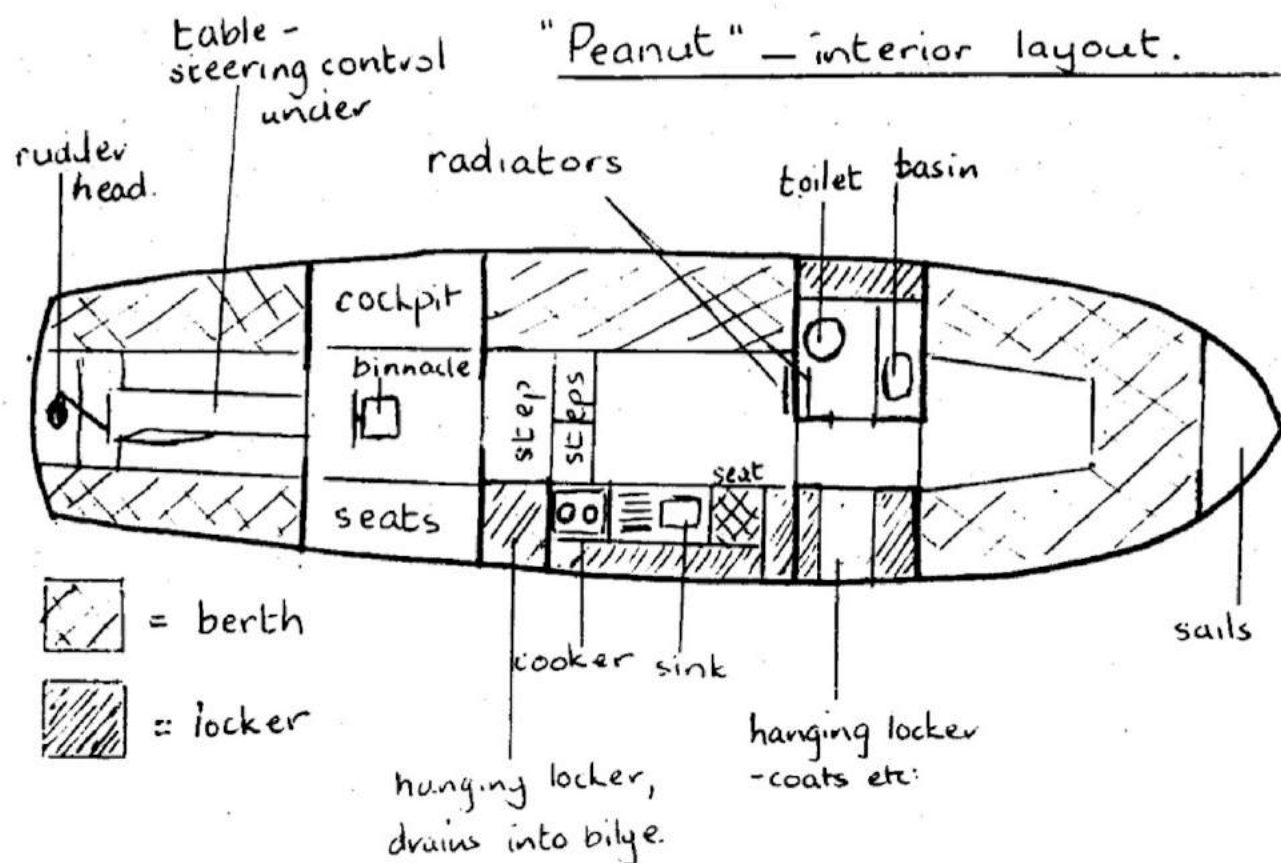 "Peanut" – interior layout.
table -
steering control
under
rudder
head.
radiators
toilet
basin
cockpit
binnacle
step
steps
seat
seats
= berth
= locker
cooker
sink
sails
hanging locker,
drains into bilge.
hanging locker
-coats etc: